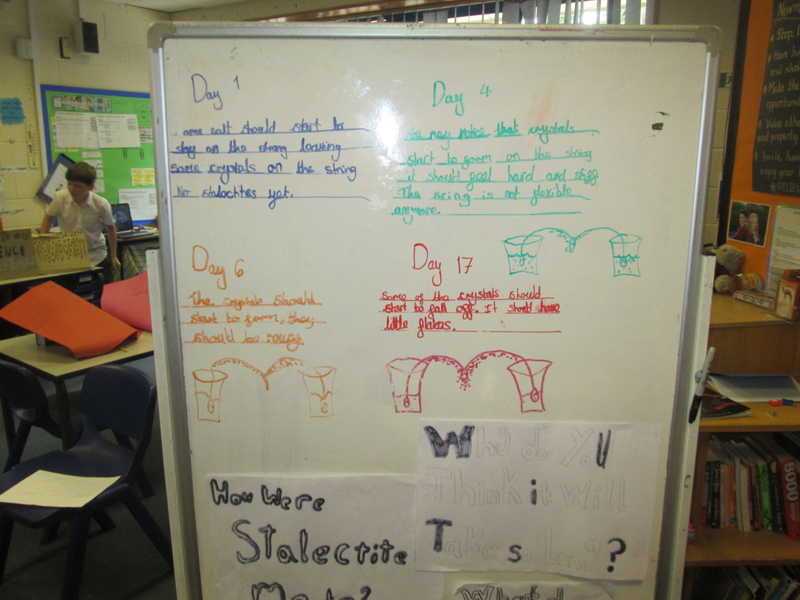 Day 1
ome salt should start to
stay on the strong learning
some crystals on the string
No stalachtes yet.
Day 4
You may notice that crystals
start to form on the string
it should feel hard and stiff
The scing is not flexible
anymore.
Day 6
The crystals should
start to form, they
should be
Day 17
some of the crystals should
start to fall off. It should have
little flakes.
How Were
Stalectite
Made?
Why do You
Think it Will
Take so Long?
What
Stop,
Have
and
Make the
opportun
Value
and property
Smile, have
enjoy your